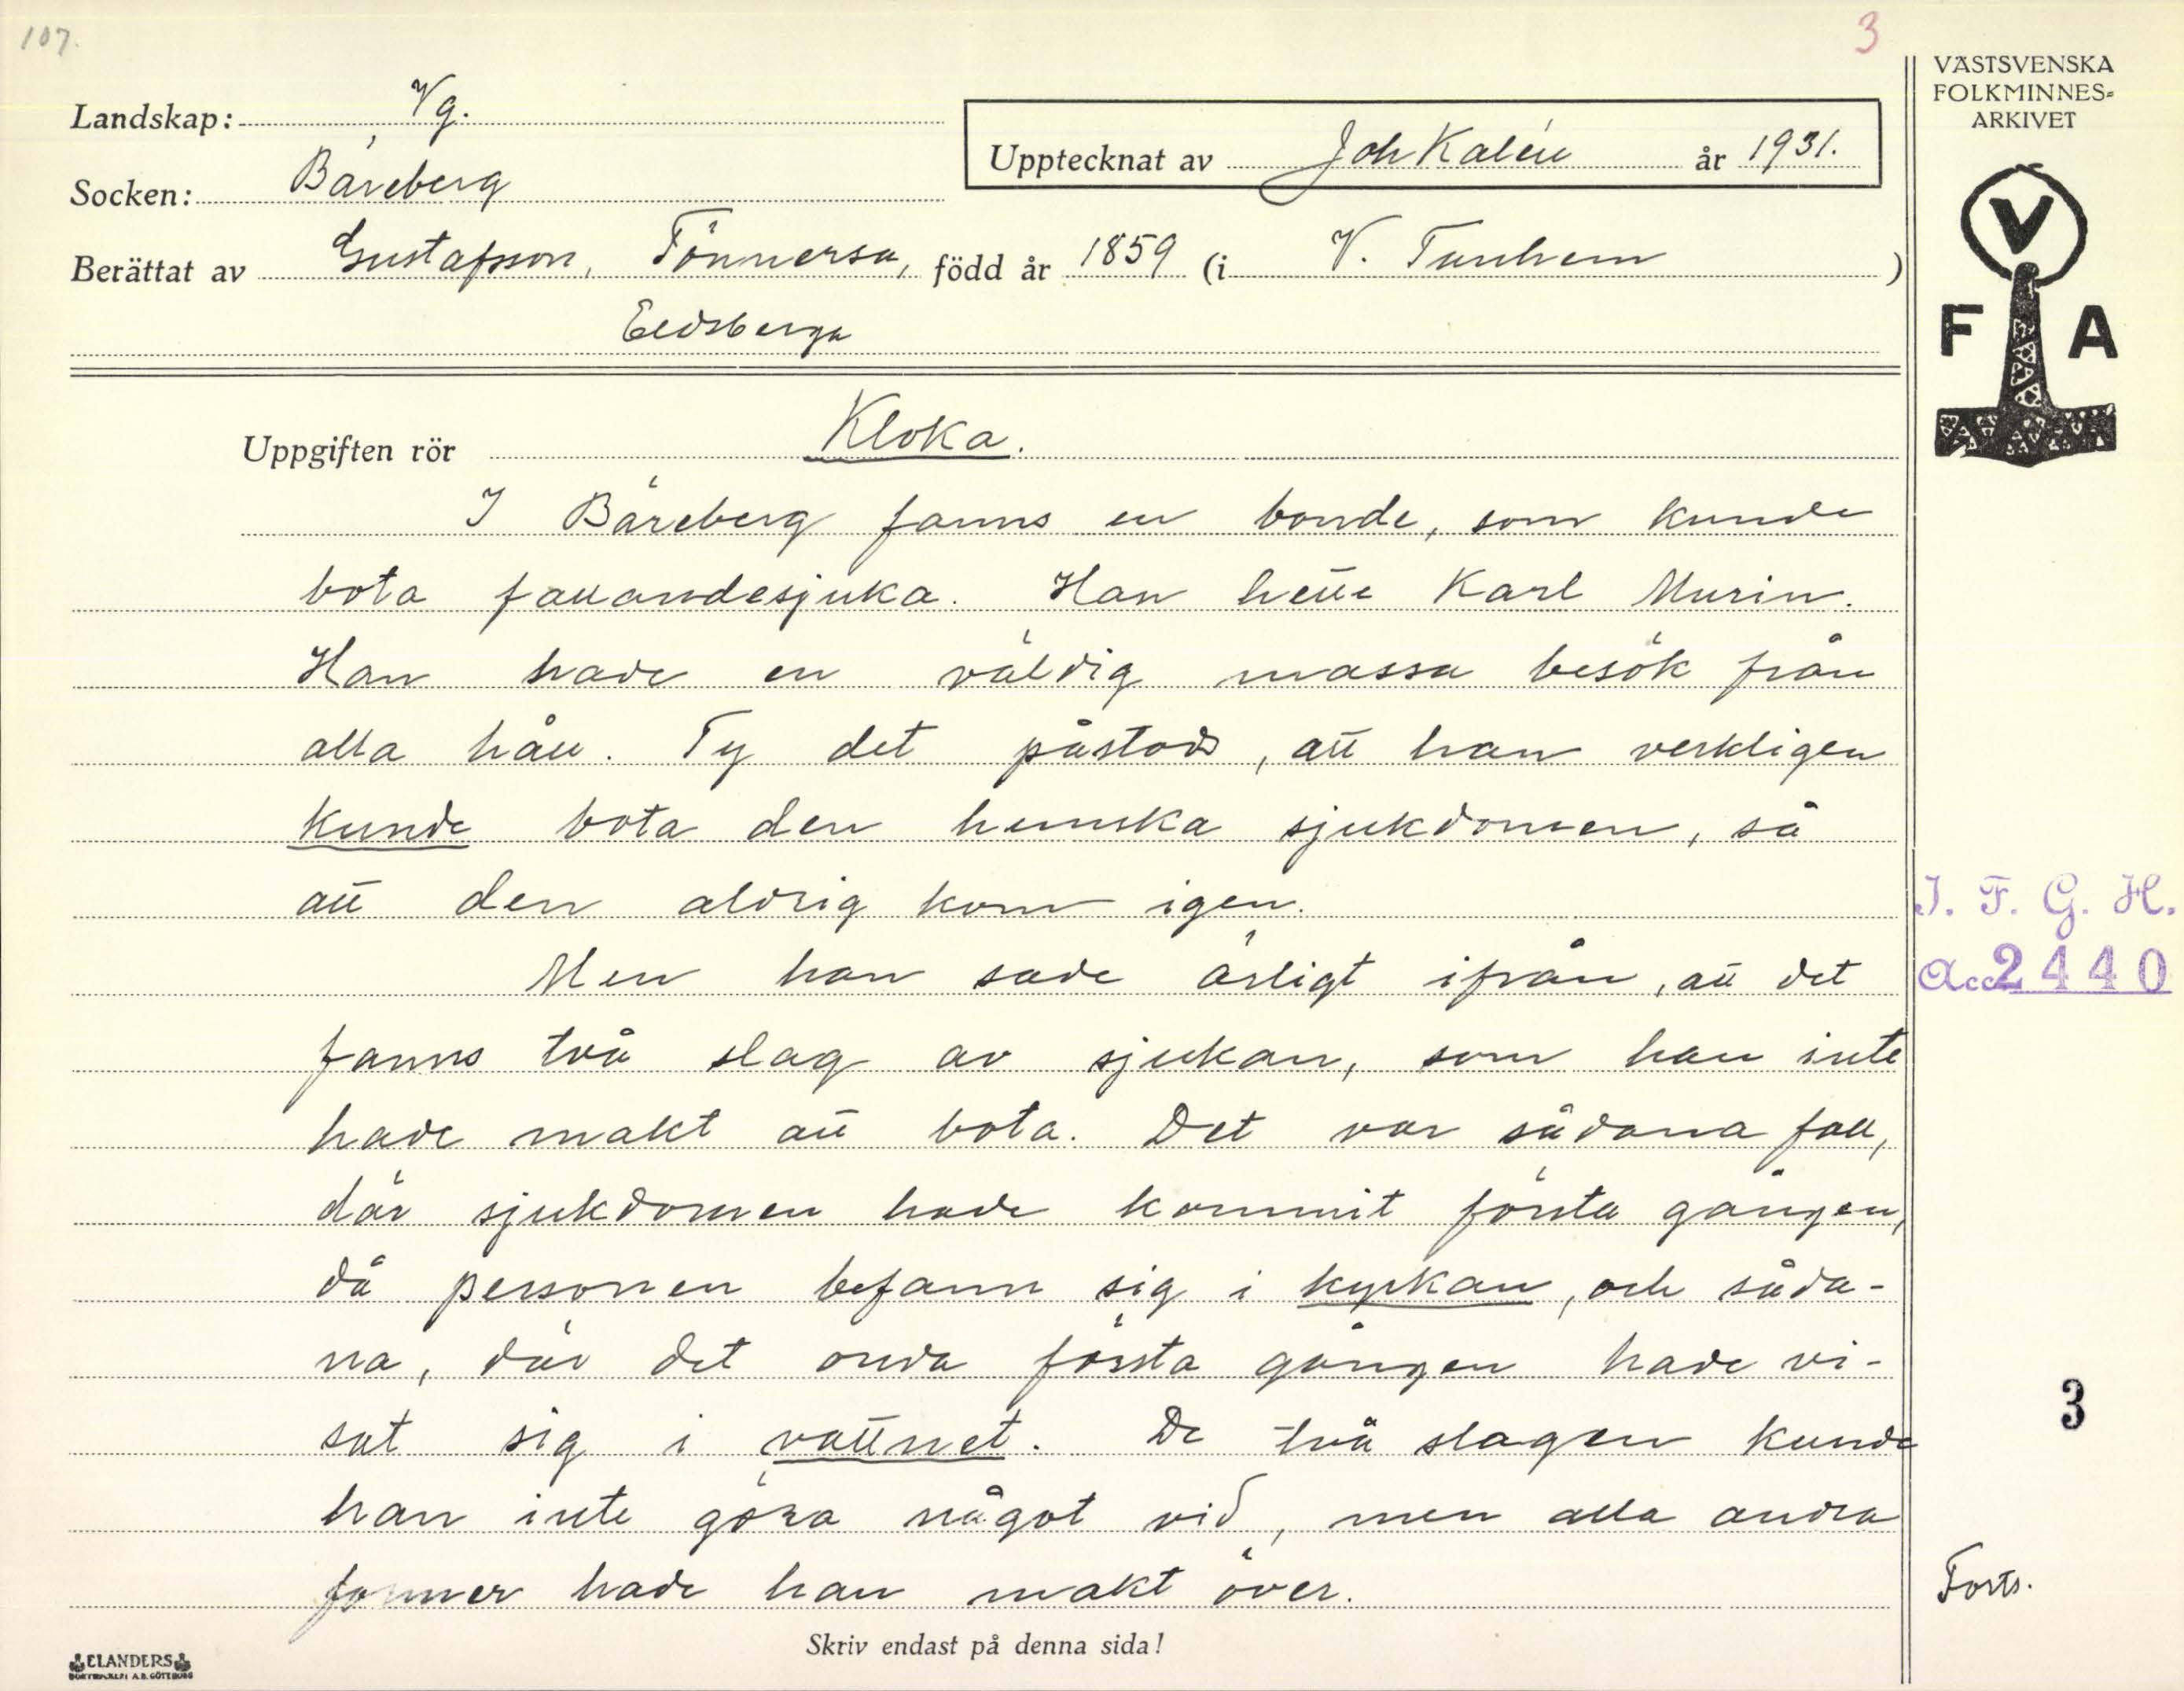 107.
3
VÄSTSVENSKA
FOLKMINNES-
ARKIVET
Landskap: Vg.
Upptecknat av Joh Kalén år 1931.
Socken: Bäreberg
Berättat av Gustafsson, Tönnersa, född år 1859 (i V. Tunhem )
Eldsberga
V
F A
Uppgiften rör Kloka.
I Bäreberg fanns en bonde, som kunde
bota fallandesjuka. Han hette Karl Murin.
Han hade en väldig massa besök från
alla håll. Ty det påstods, att han verkligen
kunde bota den hemska sjukdomen, så
att den aldrig kom igen.
I. F. G. H.
Men han sade ärligt ifrån, att det
Acc 2440
fanns två slag av sjukan, som han inte
hade makt att bota. Det var sådana fall,
där sjukdomen hade kommit första gången,
då personen befann sig i kyrkan, och såda-
na, där det onda första gången hade vi-
3
sat sig i vattnet. De två slagen kunde
han inte göra något vid, men alla andra
former hade han makt över.
Forts.
Skriv endast på denna sida!
ELANDERS
BOKTRYCKERI A.B. GÖTEBORG